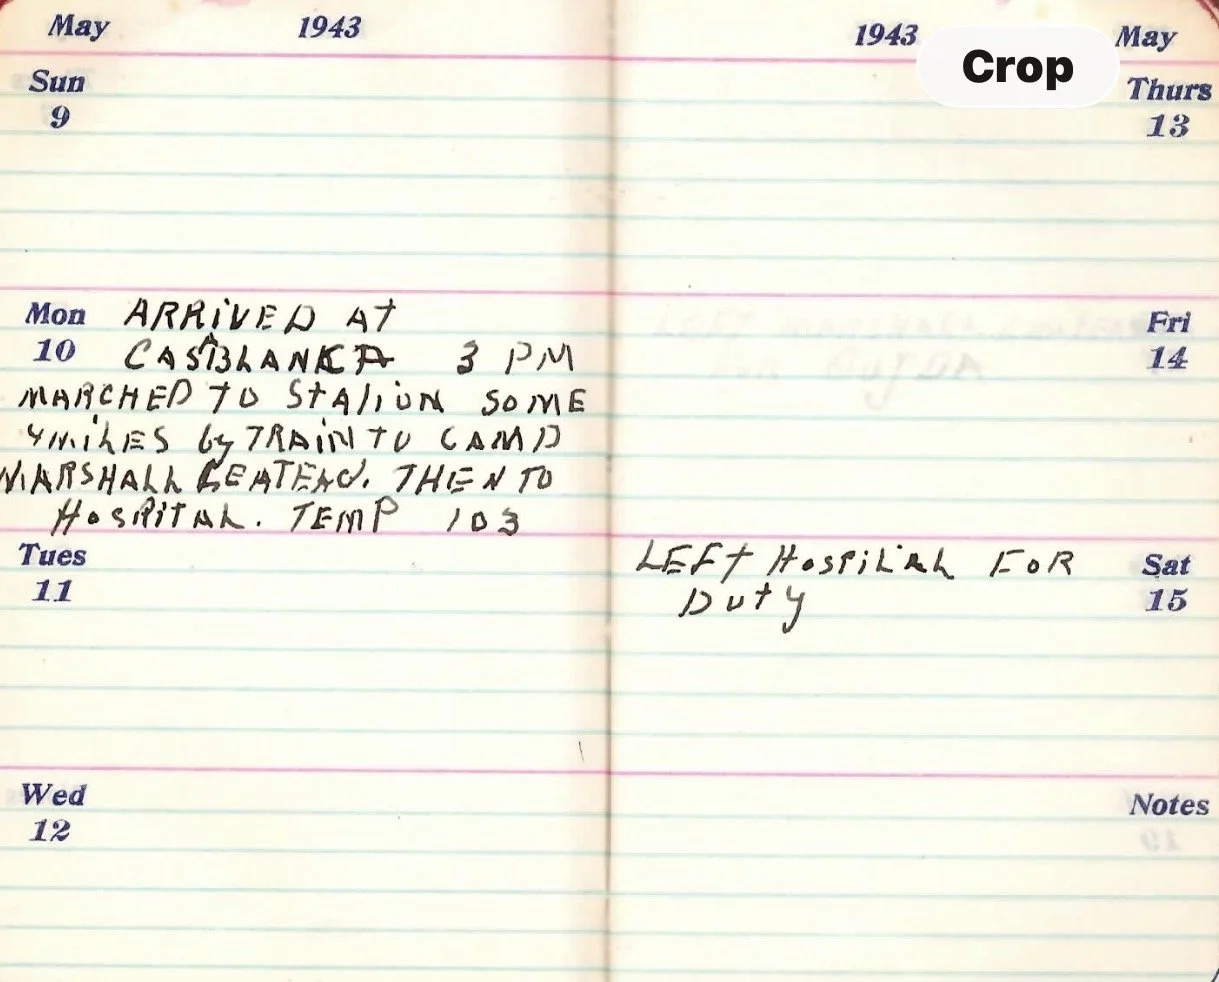 May 1943
Sun
9
Mon ARRIVED AT
10 CASABLANKA 3 PM
MARCHED TO STATION SOME
4 MILES by TRAIN TO CAMP
MARSHALL THEN TO
HOSPITAL. TEMP 103
Tues
11
Wed
12
1943 May
Crop
Thurs
13
Fri
14
LEFT HOSPITAL FOR Sat
DUTY 15
Notes